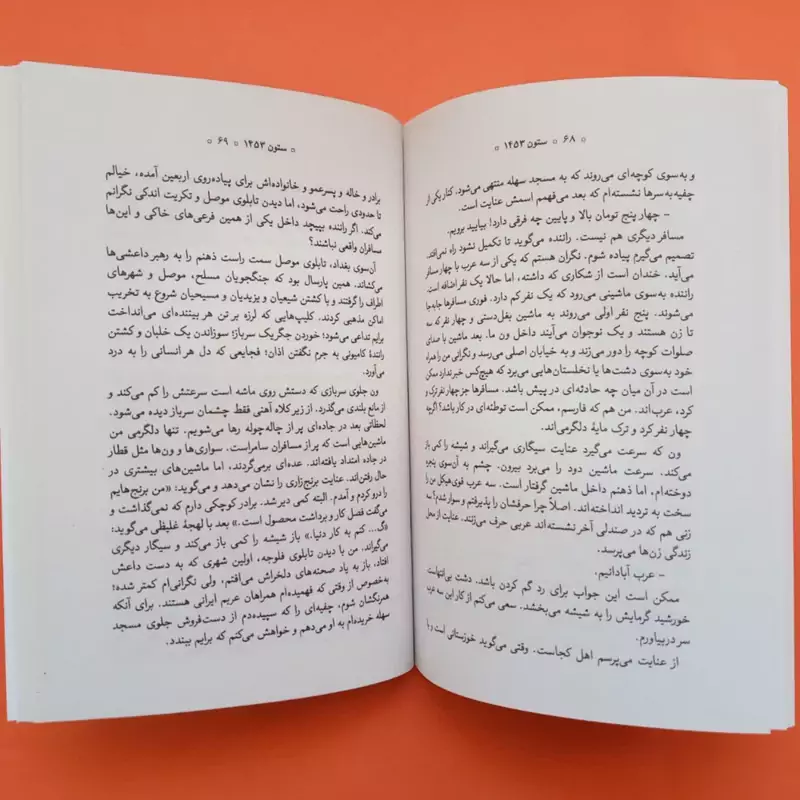 ۶۸ ○ ستون ۱۴۵۳ ○
و به‌سوی کوچه‌ای می‌روند که به مسجد سهله منتهی می‌شود. کنار یکی از
چفیه‌به‌سرها نشسته‌ام که بعد می‌فهمم اسمش عنایت است.
- چهار پنج تومان بالا و پایین چه فرقی دارد! بیایید برویم.
مسافر دیگری هم نیست. راننده می‌گوید تا تکمیل نشود راه نمی‌افتد.
تصمیم می‌گیرم پیاده شوم. نگران هستم که یکی از سه عرب با چهار مسافر
می‌آید. خندان است از شکاری که داشته، اما حالا یک نفر اضافه است.
راننده به‌سوی ماشینی می‌رود که یک نفر کم دارد. فوری مسافرها جابه‌جا
می‌شوند. پنج نفر اولی می‌روند به ماشین بغل‌دستی و چهار نفر که سه
تا زن هستند و یک نوجوان می‌آیند داخل ون ما. بعد ماشین با صدای
صلوات کوچه را دور می‌زند و به خیابان اصلی می‌رسد و نگرانی من را همراه
خود به‌سوی دشت‌ها یا نخلستان‌هایی می‌برد که هیچ‌کس خبر ندارد ممکن
است در آن میان چه حادثه‌ای در پیش باشد. مسافرها جز چهار نفر ترک و
کرد، عرب‌اند. من هم که فارسم، ممکن است توطئه‌ای در کار باشد؟ اگرچه
چهار نفر کرد و ترک مایهٔ دلگرمی‌اند.
ون که سرعت می‌گیرد عنایت سیگاری می‌گیراند و شیشه را کمی باز
می‌کند. سرعت ماشین دود را می‌برد بیرون. چشم به آن‌سوی پنجره
دوخته‌ام، اما ذهنم داخل ماشین گرفتار است. سه عرب قوی‌هیکل من را
سخت به تردید انداخته‌اند. اصلاً چرا حرفشان را پذیرفتم و سوار شدم؟ سه
زنی هم که در صندلی آخر نشسته‌اند عربی حرف می‌زنند. عنایت از محل
زندگی زن‌ها می‌پرسد.
- عرب آبادانیم.
ممکن است این جواب برای رد گم کردن باشد. دشت بی‌انتهاست.
خورشید گرمایش را به شیشه می‌بخشد. سعی می‌کنم از کار این سه عرب
سر دربیاورم.
از عنایت می‌پرسم اهل کجاست. وقتی می‌گوید خوزستانی است و با
○ ستون ۱۴۵۳ ○ ۶۹ ○
برادر و خاله و پسرعمو و خانواده‌اش برای پیاده‌روی اربعین آمده، خیالم
تا حدودی راحت می‌شود، اما دیدن تابلوی موصل و تکریت اندکی نگرانم
می‌کند. اگر راننده بپیچد داخل یکی از همین فرعی‌های خاکی و این‌ها
مسافران واقعی نباشند؟
آن‌سوی بغداد، تابلوی موصل سمت راست ذهنم را به رهبر داعشی‌ها
می‌کشاند. همین پارسال بود که جنگجویان مسلح، موصل و شهرهای
اطراف را گرفتند و با کشتن شیعیان و یزیدیان و مسیحیان شروع به تخریب
اماکن مذهبی کردند. کلیپ‌هایی که لرزه بر تن هر بیننده‌ای می‌انداخت
برایم تداعی می‌شود؛ خوردن جگر یک سرباز؛ سوزاندن یک خلبان و کشتن
رانندهٔ کامیونی به جرم نگفتن اذان؛ فجایعی که دل هر انسانی را به درد
می‌آورد.
ون جلوی سربازی که دستش روی ماشه است سرعتش را کم می‌کند و
از مانع بلندی می‌گذرد. از زیر کلاه آهنی فقط چشمان سرباز دیده می‌شود.
لحظاتی بعد در جاده‌ای پر از چاله‌چوله رها می‌شویم. تنها دلگرمی من
ماشین‌هایی است که پر از مسافران سامراست. سواری‌ها و ون‌ها مثل قطار
در جاده امتداد یافته‌اند. عده‌ای برمی‌گردند، اما ماشین‌های بیشتری در
حال رفتن‌اند. عنایت برنج‌زاری را نشان می‌دهد و می‌گوید: «من برنج‌هایم
را درو کردم و آمدم. البته کمی دیر شد. برادر کوچکی دارم که نمی‌گذاشت و
می‌گفت فصل کار و برداشت محصول است.» بعد با لهجهٔ غلیظی می‌گوید:
«گ... کنم به کار دنیا.» باز شیشه را کمی باز می‌کند و سیگار دیگری
می‌گیراند. من با دیدن تابلوی فلوجه، اولین شهری که به دست داعش
افتاد، باز به یاد صحنه‌های دلخراش می‌افتم، ولی نگرانی‌ام کمتر شده؛
به‌خصوص از وقتی که فهمیده‌ام همراهان عربم ایرانی هستند. برای آنکه
همرنگشان شوم، چفیه‌ای را که سپیده‌دم از دست‌فروش جلوی مسجد
سهله خریده‌ام به او می‌دهم و خواهش می‌کنم که برایم ببندد.